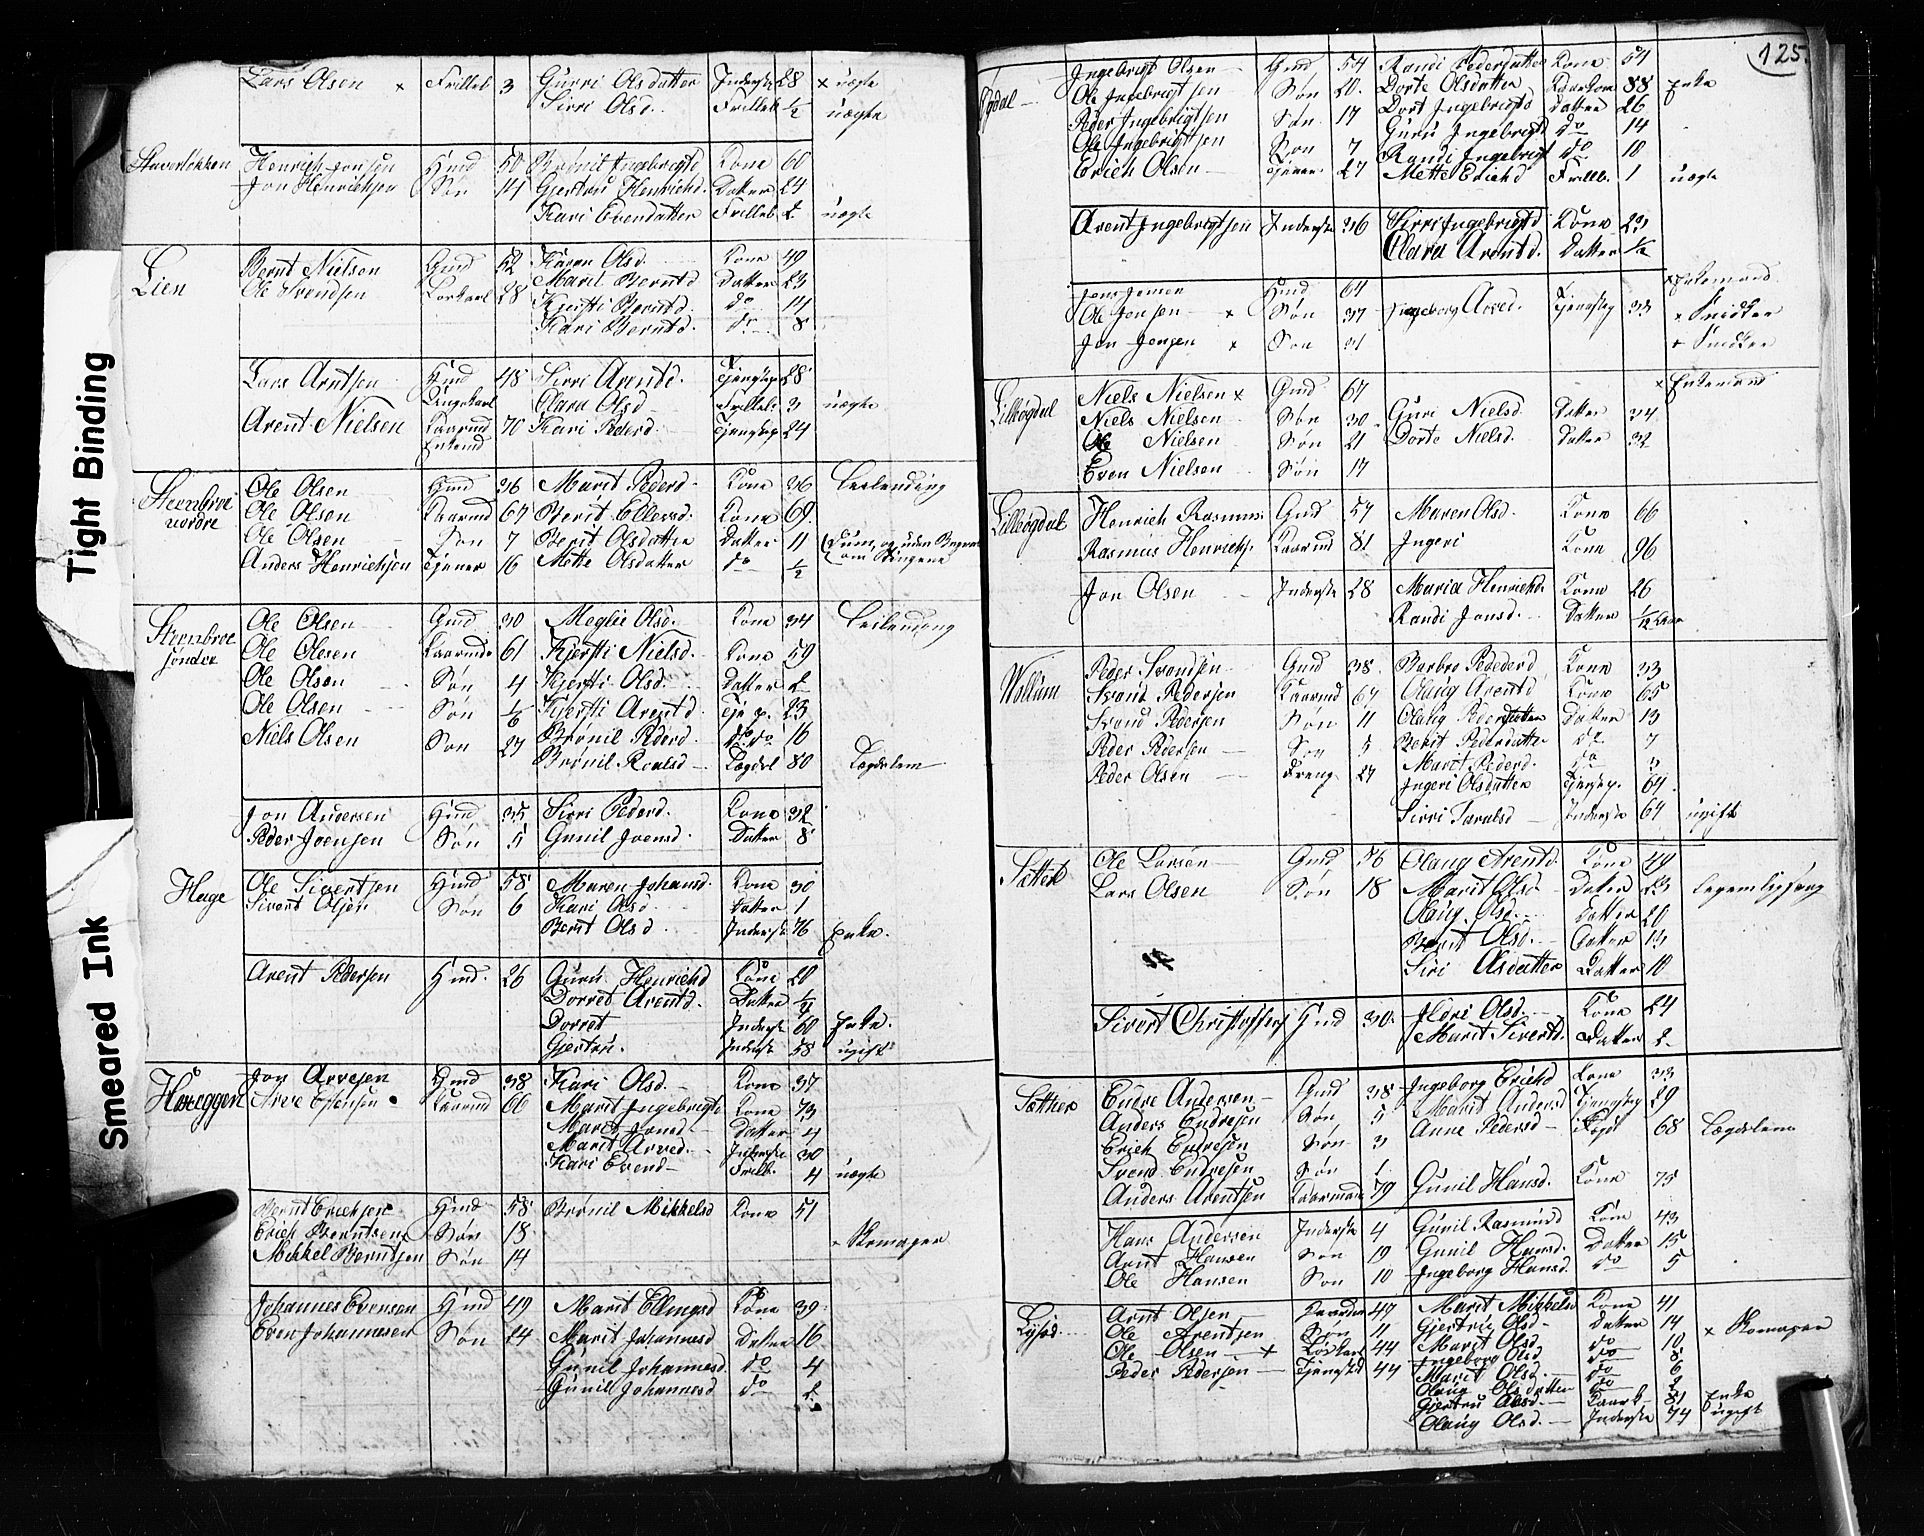 Lars Olsen × Frilleb 3 Gurri Olsdatter Inderste 28 × uægte
Sirri Olsd. Frilleb ½ uægte
Staverløkken Henrich Jonsen Hmd 50 Brønil Ingebrigtd Kone 60
Jon Henrichsen Søn 14 Gjertru Henrichd. Datter 24
Kari Evendatter Frilleb 2 uægte
Lien Bernt Nielsen Gmd 52 Karen Olsd. Kone 49
Ole Svendsen Loskarl 28 Marit Berntd Datter 23
Kjersti Berntd. do 14
Kari Berntd. do 8
Lars Arntsen Hmd 48 Sirri Arentd. Tjenstep 28
Clara Olsd Frilleb. 3 uægte
Arent Nielsen Kaarmd 70 Kari Pederd Tjenstep 24
Enkemd
Steenbroe nordre Ole Olsen Gmd 36 Marit Pederd. Kone 36 Leilending
Ole Olsen Kaarmd 67 Berit Ellevsd. Kone 69
Ole Olsen Søn 7 Berit Olsdatter Datter 11
Anders Henrichsen Tjener 16 Mette Olsdatter do ½
Steenbroe søndre Ole Olsen Gmd 30 Meglie Olsd. Kone 34 Leilending
Ole Olsen Kaarmd 61 Kjersti Nielsd. Kone 59
Ole Olsen Søn 4 Kjersti Olsd. Datter 2
Ole Olsen Søn 1/6 Kjersti Arentd. Tje p. 23
Niels Olsen Søn 27 Brønil Pederd do do 16
Brønil Roalsd Lægdsl 80 Lægdslem
Jon Andersen Hmd 35 Sirri Pederd. Kone 32
Peder Joensen Søn 5 Gunil Joensd. Datter 8
Hage Ole Sivertsen Hmd 58 Maren Johansd. Kone 30
Sivert Olsen Søn 6 Kari Olsd Datter 1
Berit Olsd. Inderste 76 Enke.
Arent Pedersen Hmd. 26 Guru Henrichd Kone 20
Dorret Arentd. Datter ¼
Dorret Inderst 60 Enke.
Gjertru. Inderste 58 ugift
Høseggen Jon Arvesen Gmd 38 Kari Olsd. Kone 37
Arve Estensen Kaarmd 66 Marit Ingebrigtd Kone 73
Marit Jonsd Datter 4
Marit Arved. Inderste 30
Kari Evend Frilleb. 4 uægte
Bernt Erichsen Hmd 58 Brønil Mikkelsd Kone 51
Erich Berntsen Søn 18 × Skomager
Mikkel Berntsen Søn 14
Johannes Evensen Hmd 49 Marit Ellingsd Kone 39
Even Johannesen Søn 24 Marit Johannesd Datter 16
Gunil Johannesd. do 4
Gunild Johannesd do 2
125.
Ingebrigt Olsen Gmd 54 Randi Pedersdatter Kone 54
Ole Ingebrigtsen Søn 20. Dorte Olsdatter Kaarkone 88 Enke
Peder Ingebrigtsen Søn 17 Dort Ingebrigtd Datter 26
Ole Ingebrigtsen Søn 7 Guru Ingebrigtd do 14
Erich Olsen Tjener 27 Randi Ingebrigtd do 10
Mette Erichd Frilleb. 1 uægte
Arent Ingebrigtsen Inderste 36 Sirri Ingebrigtd Kone 23
Clara Arentd. Datter ½
Jens Jensen Hmd 64 × Enkemand
Ole Jensen × Søn 37 Ingeborg Arved. Tjenstep 33 × Snidker
Jon Jensen × Søn 31 + Snidker
Lilleøgdal Niels Nielsen × Gmd 67 × Enkemand
Niels Nielsen Søn 30 Guri Nielsd Datter 34
Ole Nielsen Søn 21 Dorte Nielsd. Datter 32
Even Nielsen Søn 17
Lilleøgdal Henrich Rasmus. Gmd 57 Maren Olsd. Kone 66
Rasmus Henrichs. Kaarmd 81 Ingeri Kone 96
Jon Olsen Inderste 28 Maria Henrichd. Kone 26
Randi Jonsd. Datter 1/12 Aar
Wollum Peder Svendsen Gmd 38. Barbro Pederd Kone 33
Svend Pedersen Kaarmd 67 Olaug Arentd Kone 65
Svend Pedersen Søn 11 Olaug Pedersdatter Datter 13
Peder Pedersen Søn 5 Berit Pedersdatter do 7
Peder Olsen Dreng 27 Marit Pederd. do 3
Ingeri Olsdatter Tjenstep. 64
Sirri Taralsd Inderste 64 ugift
Sætter Ole Larsen Gmd 56 Olaug Arentd. Kone 49
Lars Olsen Søn 18 Marit Olsd Datter 23
Olaug. Olsd. Datter 20
Berit Olsd. Datter 13
Siri Olsdatter Datter 10
Sivert Christoffers Hmd 30. Olsd. Kone 24
Marit Sivertd. Datter 2
Sætther Endre Andersen Gmd 38 Ingeborg Erichd Kone 33
Anders Endresen Søn 5 Marit Andersd Tjenestep 29
Erich Endresen Søn 3 Anne Pedersd Lægdl 68 Lægdslem
Svend Endresen Søn 1
Anders Arentsen Kaarmand 79 Gunil Hansd. Kone 75
Hans Andersen Inderste 4 Gunil Rasmusd Kone 43
Arnt Hansen Søn 19 Gunil Hansd. Datter 15
Ole Hansen Søn 10 Ingeborg Hansd. do 5
Arnt Olsen 47 Marit Mikkelsd Kone 41
Ole Arentsen Søn 11 Gjertrie Olsd. Datter 14 × Skomager
Ole Olsen + Loskarl 44 Marit Olsd. do 10
Peder Pedersen Tjenstkl 44 Ingeborg Olsd do 8
Marit Olsd. do 6
Olaug Olsdatter do 2
Gjertru Olsd. Kaark 81 Enke
Olaug Olsd. Inderste 74 ugift
Tight Binding
Smeared Ink